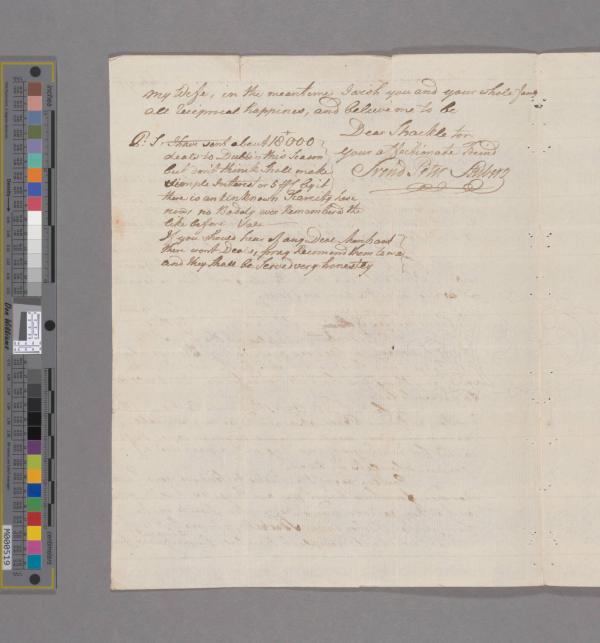 my Wife, in the meantime I wish you and your whole family
all reciprocal happiness, and believe me to be
Dear Shackleton
your affectionate Friend
Svend Peter
P: S: I have sent about 18000
deals to Dublin this Season
but don't think shall make
Simple Interest or 5 pCt by it
there is an unknown Scarcity here
now no Body ever Remembers the
like before Vale
If you should hear of any Deal Merchant
there want Deals, pray Recomend them to me
and they shall be Served very honestly
inches
centimetres
Don Williams
M000519